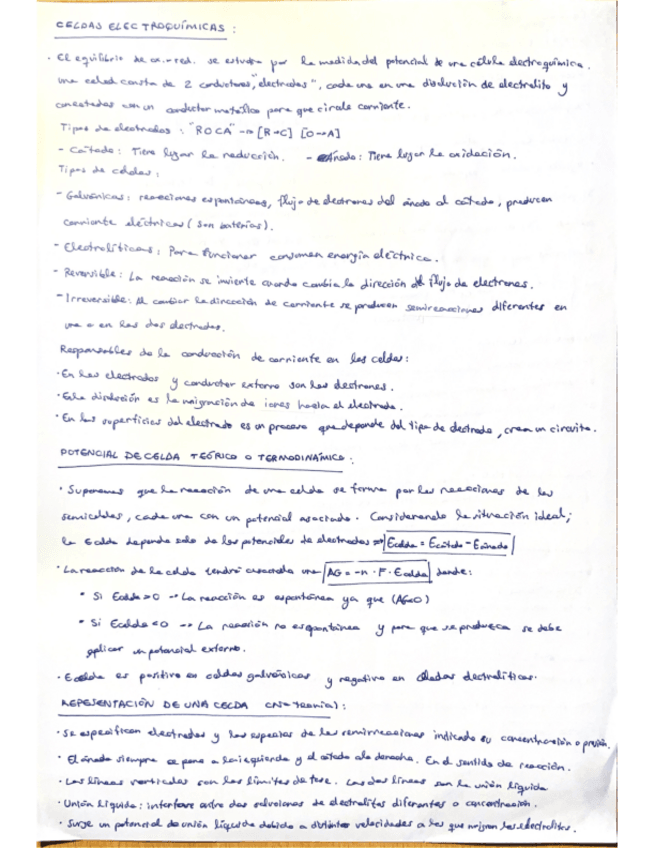 CELDAS ELECTROQUÍMICAS :
· El equilibrio de ox.-red. se estudia por la medida del potencial de una célula electroquímica.
una celda consta de 2 conductores, "electrodos", cada uno en una disolución de electrolito y
conectados con un conductor metálico para que circule corriente.
Tipos de electrodos : "ROCA" → [R→C] [O→A]
- Cátodo: Tiene lugar la reducción. - Ánodo: Tiene lugar la oxidación.
Tipos de celdas :
- Galvánicas: reacciones espontáneas, flujo de electrones del ánodo al cátodo, producen
corriente eléctrica (son baterías).
- Electrolíticas: Para funcionar consumen energía eléctrica.
- Reversible: La reacción se invierte cuando cambia la dirección del flujo de electrones.
- Irreversible: Al cambiar la dirección de corriente se producen semirreacciones diferentes en
uno o en los dos electrodos.
Responsables de la conducción de corriente en las celdas:
· En los electrodos y conductor externo son los electrones.
· En la disolución es la migración de iones hacia el electrodo.
· En las superficies del electrodo es un proceso que depende del tipo de electrodo, crea un circuito.
POTENCIAL DE CELDA TEÓRICO O TERMODINÁMICO :
· Suponemos que la reacción de una celda se forma por las reacciones de las
semiceldas, cada una con un potencial asociado. Considerando la situación ideal;
la Ecelda depende solo de los potenciales de electrodos → Ecelda = Ecátodo - Eánodo
· La reacción de la celda tendrá asociada una ΔG = -n · F · Ecelda donde:
· Si Ecelda > 0 → La reacción es espontánea ya que (ΔG<0)
· Si Ecelda < 0 → La reacción no espontánea y para que se produzca se debe
aplicar un potencial externo.
· Ecelda es positivo en celdas galvánicas y negativo en celdas electrolíticas.
REPESENTACIÓN DE UNA CELDA :
· Se especifican electrodos y las especies de las semirreacciones indicando su concentración o presión.
· El ánodo siempre se pone a la izquierda y el cátodo a la derecha. En el sentido de reacción.
· Las líneas verticales son los límites de fase. Las dos líneas son la unión líquida
· Unión líquida: interfase entre dos soluciones de electrolitos diferentes o concentración.
· Surge un potencial de unión líquida debido a distintas velocidades a las que migran los electrolitos.